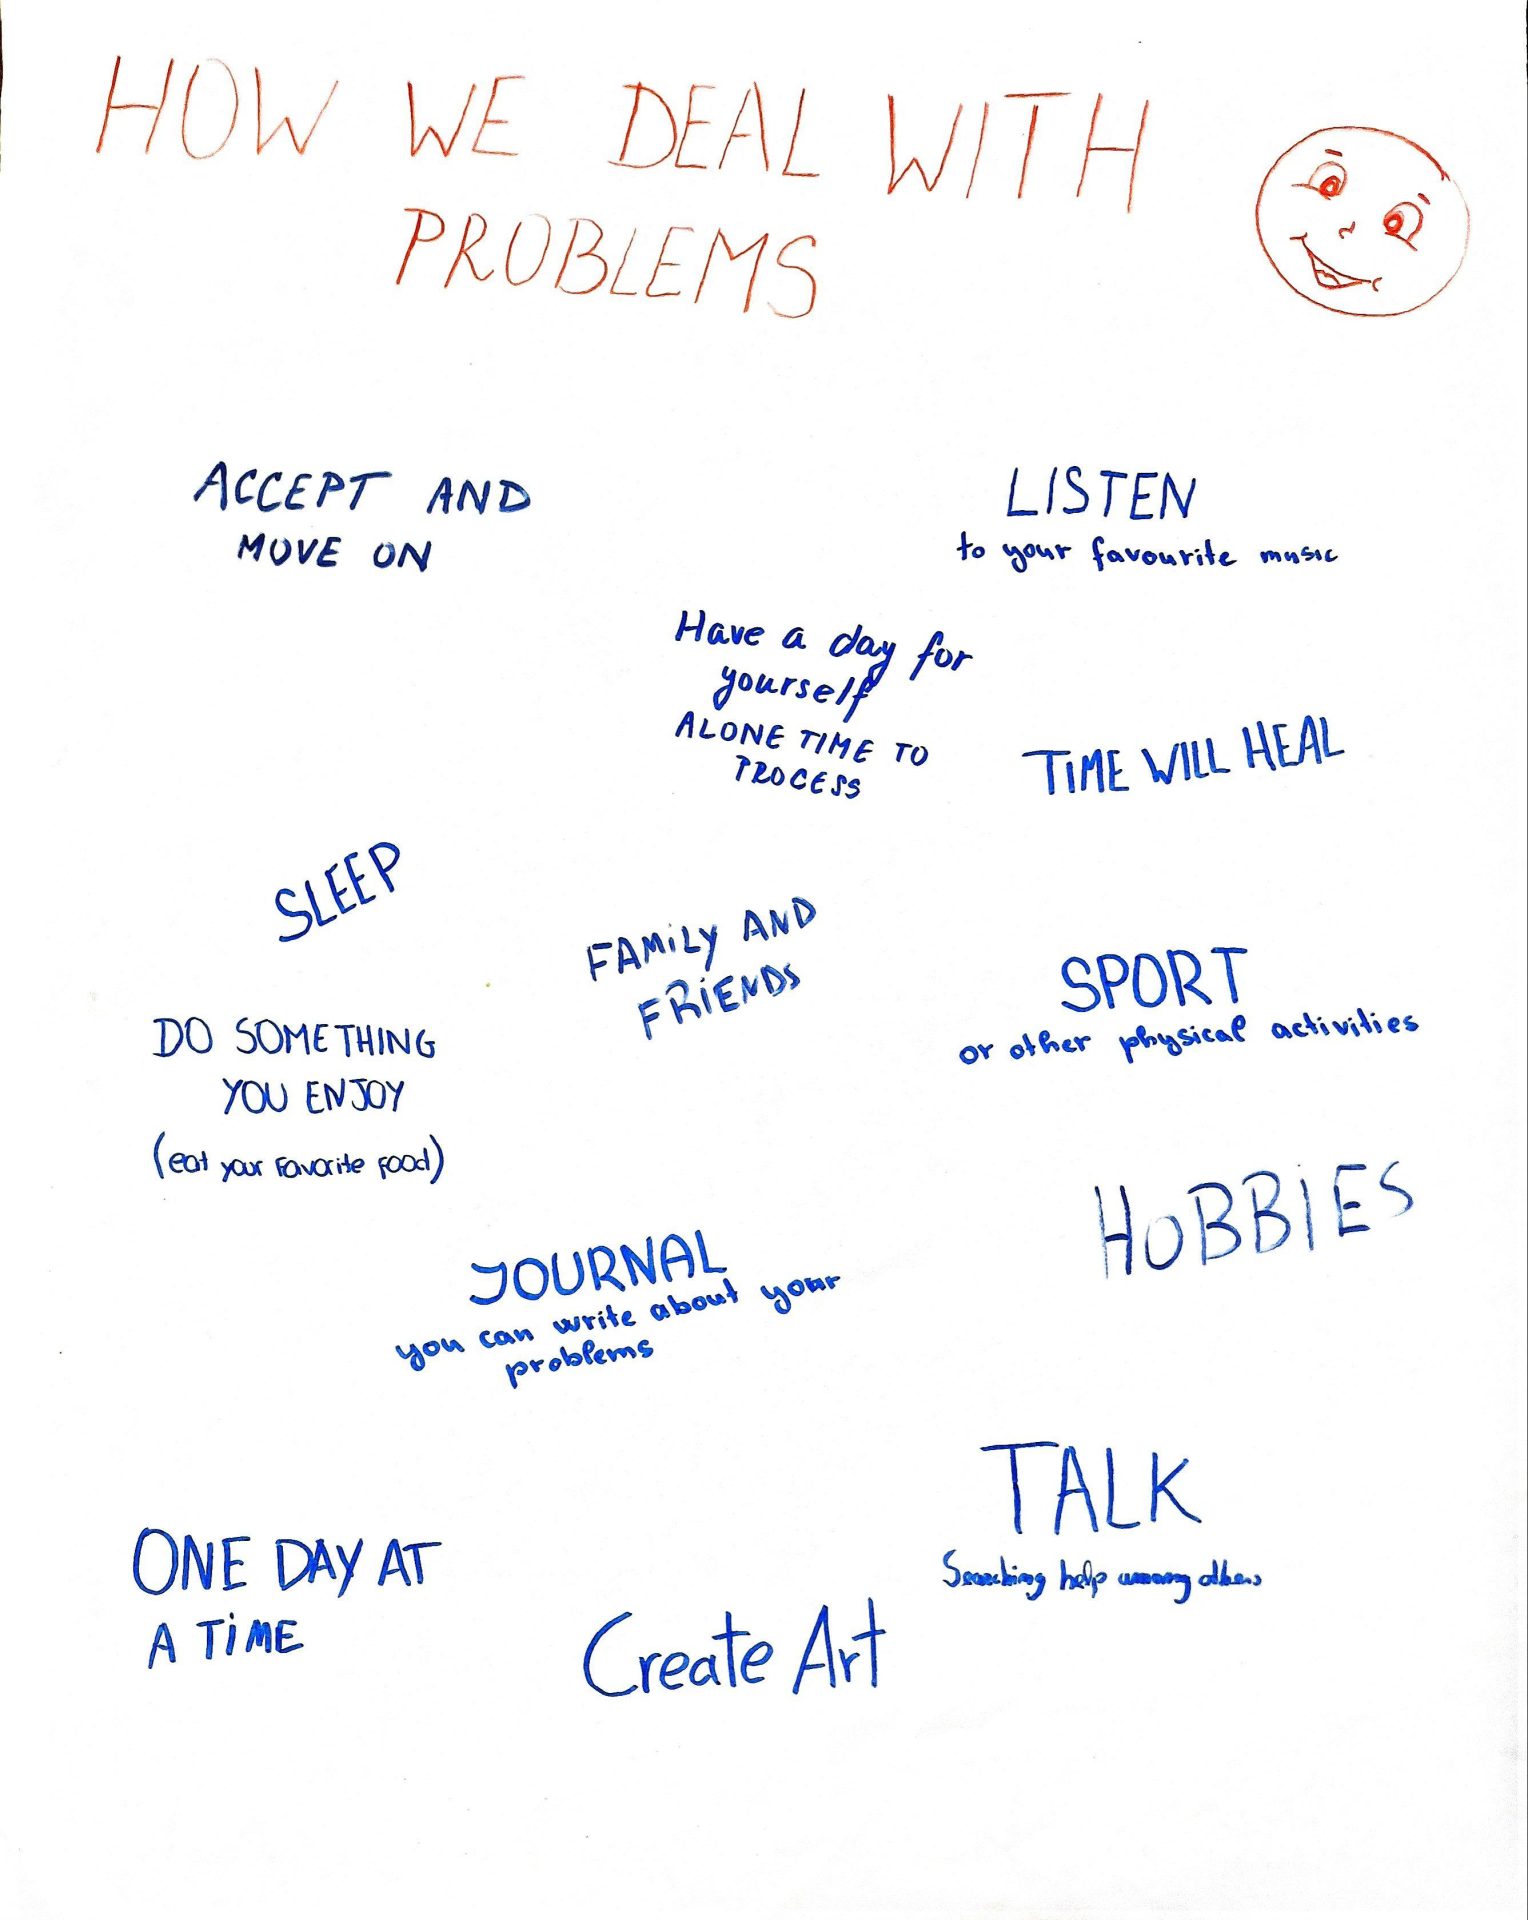 HOW WE DEAL WITH
PROBLEMS
ACCEPT AND
MOVE ON
LISTEN
to your favourite music
Have a day for
yourself
ALONE TIME TO
PROCESS
TIME WILL HEAL
SLEEP
FAMiLY AND
FRiENDS
SPORT
or other physical activities
DO SOMETHING
YOU ENJOY
(eat your FavoriTe Food)
HOBBIES
JOURNAL
you can write about your
problems
TALK
Searching help among others
ONE DAY AT
A TiME
Create Art